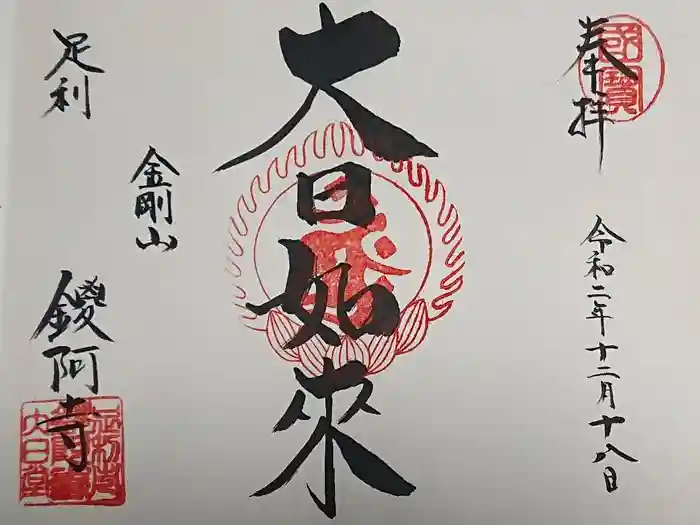 奉拝
國寶
令和二年十二月十八日
大日如來
足利
金剛山
鑁阿寺